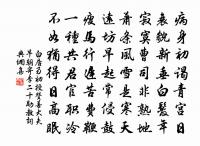 病身初謁青宮日
衰貌新垂白髮年
寂寞曹司非熱地
蕭條風雪是寒天
遠坊早起常侵鼓
瘦馬行遲苦費鞭
一種共君官職冷
不如猶得日高眠
白居易初授贊善大夫
早朝寄李二十助教